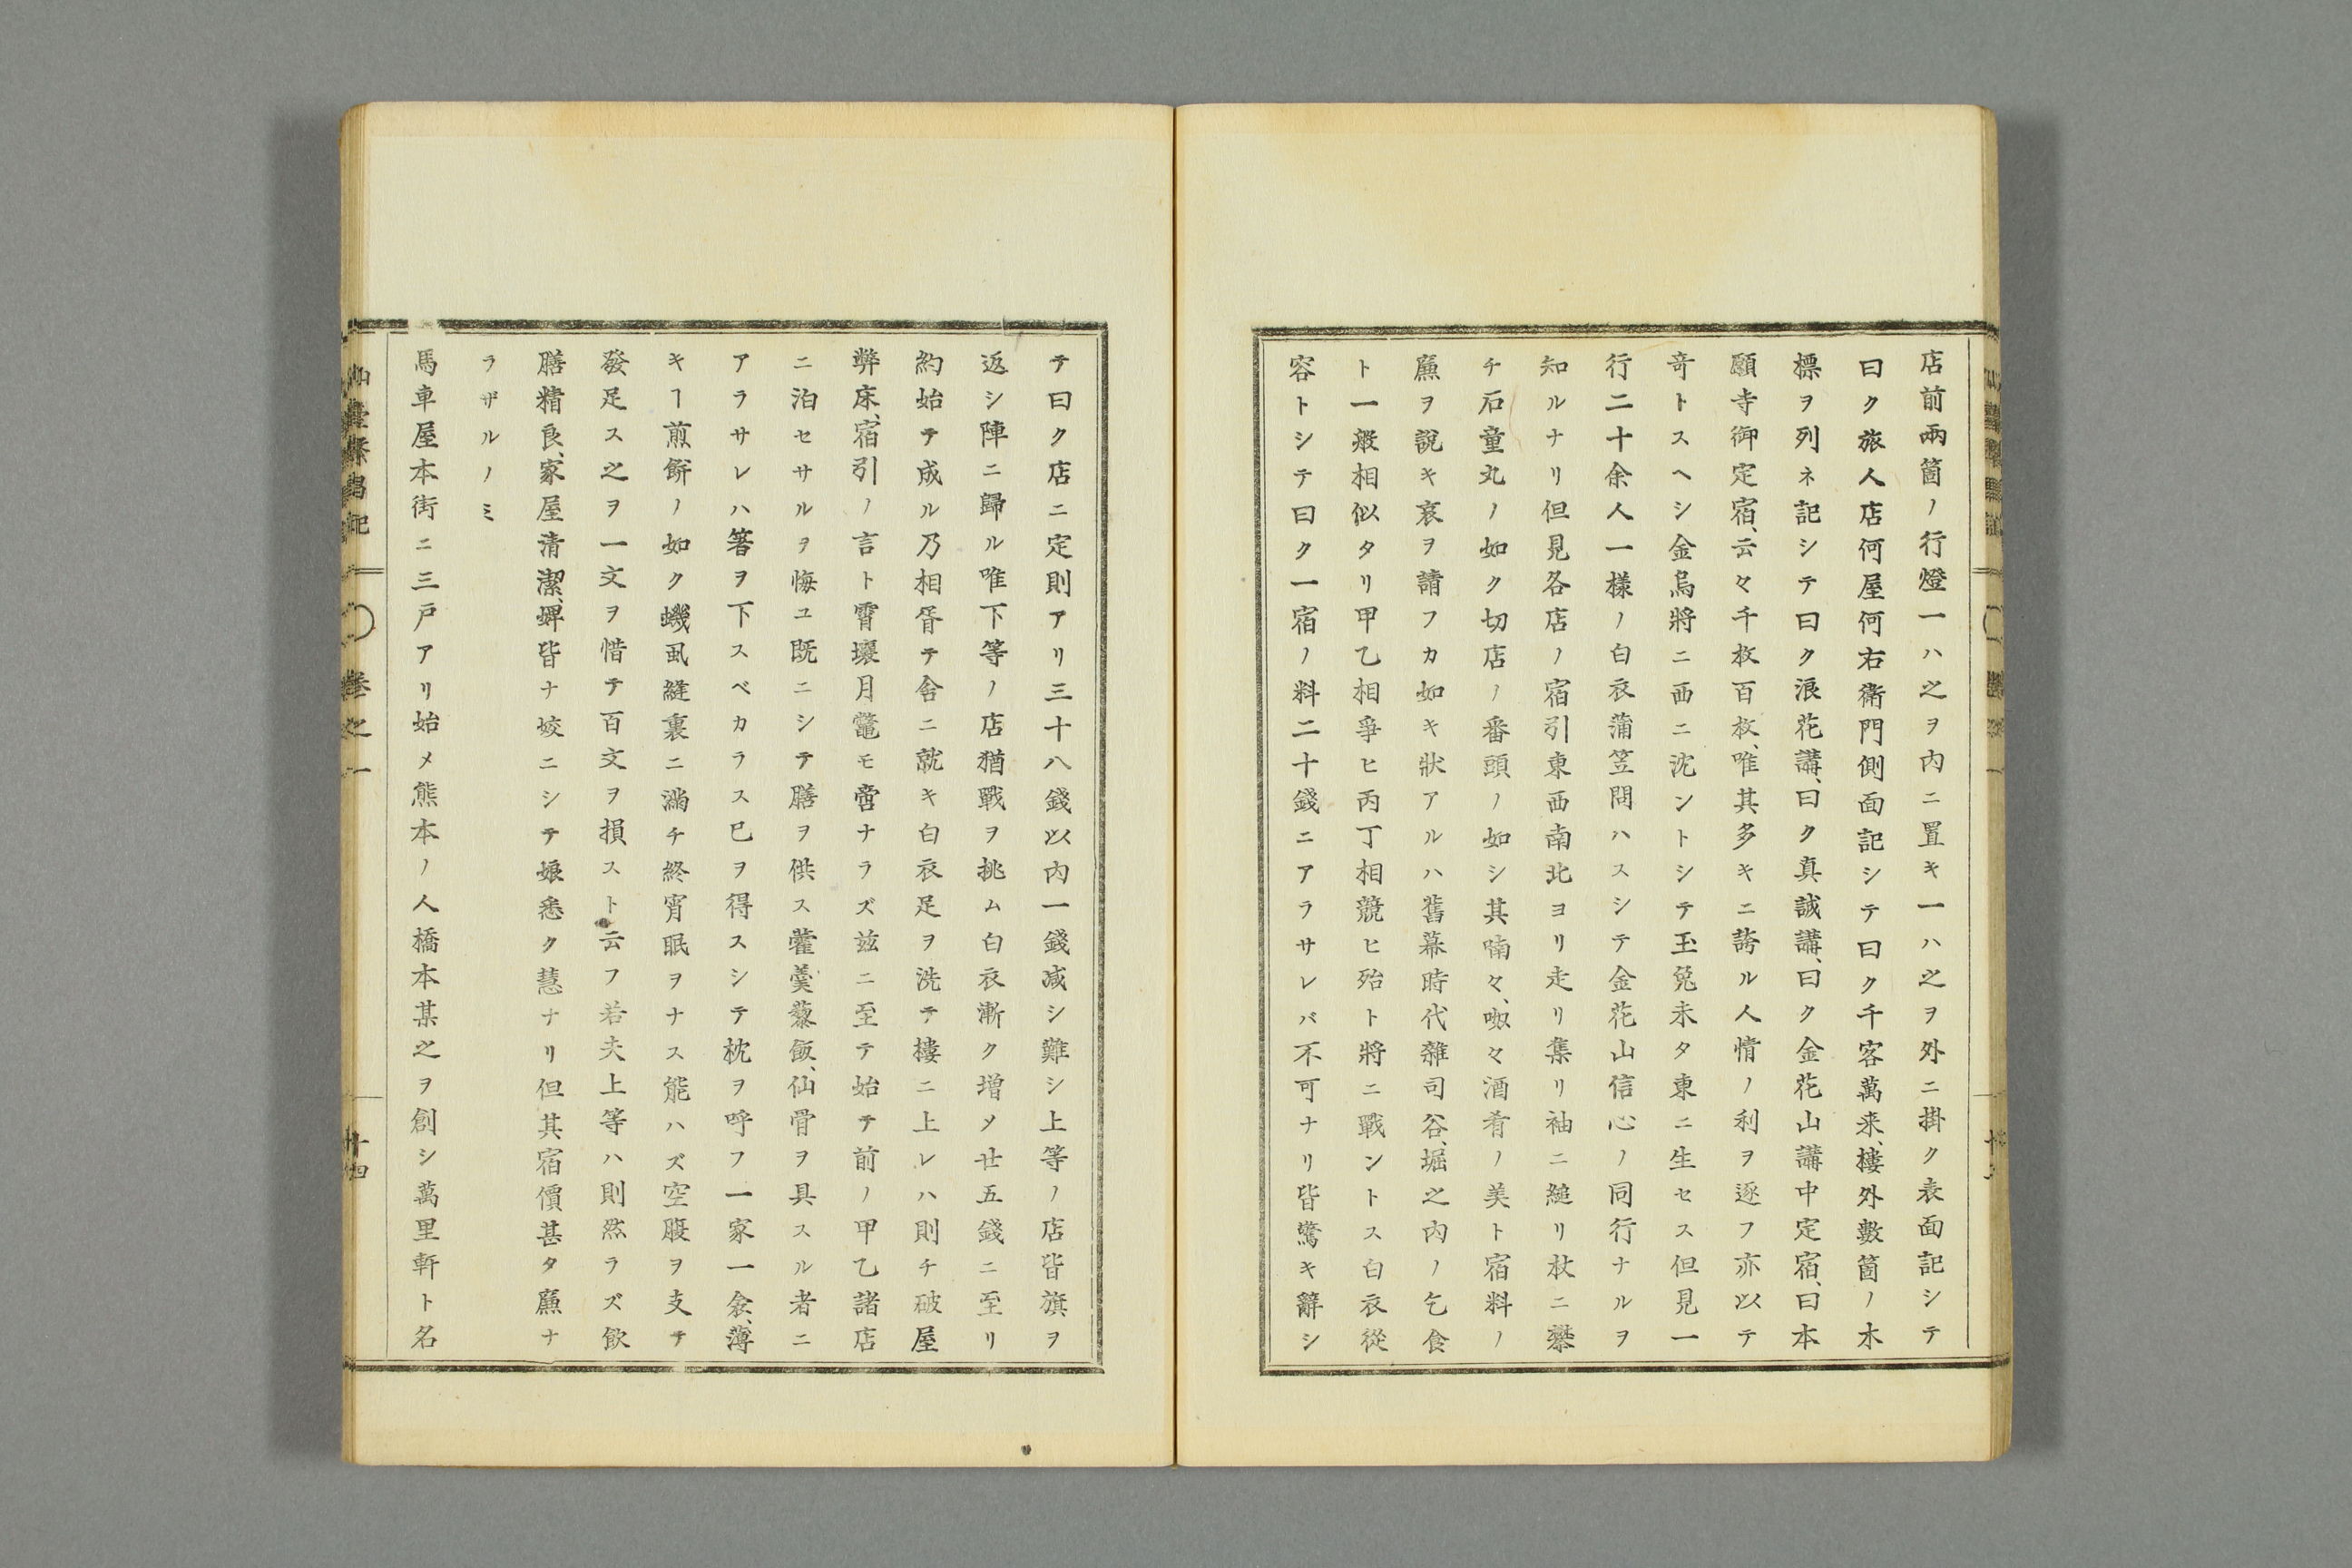 店前兩箇ノ行燈一ハ之ヲ内ニ置キ一ハ之ヲ外ニ掛ク表面記シテ
曰ク旅人店何屋何右衛門側面記シテ曰ク千客萬来、樓外數箇ノ木
標ヲ列ネ記シテ曰ク浪花講、曰ク真誠講、曰ク金花山講中定宿、曰本
願寺御定宿、云々千枚百枚、唯其多キニ誇ル人情ノ利ヲ逐フ亦以テ
竒トスヘシ金烏將ニ西ニ沈ントシテ玉兔未タ東ニ生セス但見一
行二十余人一樣ノ白衣蒲笠問ハスシテ金花山信心ノ同行ナルヲ
知ルナリ但見各店ノ宿引東西南北ヨリ走リ集リ袖ニ縋リ杖ニ
チ石童丸ノ如ク切店ノ番頭ノ如シ其喃々、呶々酒肴ノ美ト宿料ノ
廉ヲ説キ哀ヲ請フカ如キ狀アルハ舊幕時代雜司谷、堀之内ノ乞食
ト一般相似タリ甲乙相爭ヒ丙丁相競ヒ殆ト將ニ戰ントス白衣從
容トシテ曰ク一宿ノ料二十錢ニアラサレバ不可ナリ皆驚キ辭シ
テ曰ク店ニ定則アリ三十八錢以内一錢减シ難シ上等ノ店皆旗ヲ
返シ陣ニ歸ル唯下等ノ店猶戰ヲ挑ム白衣漸ク增メ廿五錢ニ至リ
約始テ成ル乃相胥テ舎ニ就キ白衣足ヲ洗テ樓ニ上レハ則チ破屋
弊床、宿引ノ言ト霄壤月鼈モ啻ナラズ茲ニ至テ始テ前ノ甲乙諸店
ニ泊セサルヲ悔ユ既ニシテ膳ヲ供ス藿羹藜飯、仙骨ヲ具スル者ニ
アラサレハ箸ヲ下スベカラス已ヲ得スシテ枕ヲ呼フ一家一衾、薄
キヿ煎餅ノ如ク蟣虱縫裏ニ滿チ終宵眠ヲナス能ハズ空腹ヲ支テ
發足ス之ヲ一文ヲ惜テ百文ヲ損スト云フ若夫上等ハ則然ラズ飲
膳精良、家屋清潔、婢皆ナ姣ニシテ娘悉ク慧ナリ但其宿價甚タ廉ナ
ラザルノミ
馬車屋本街ニ三戸アリ始メ熊本ノ人橋本某之ヲ創シ萬里軒ト名
仙臺繁昌記
卷之一
十四